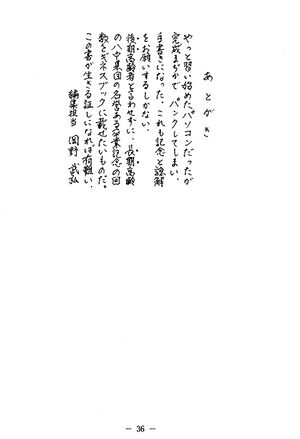 あとがき
やっと習い始めたパソコンだったが
完成まぢかで パンクしてしまい、
手書きになった、これも記念と諒解
をお願いするしかない。
後期高齢者と言わせずに、長期高齢
の八中集団の名誉ある卒業記念の回
数をギネスブックに載せたいものだ。
この書が生きる証しになれば有難い、
編集担当 岡野 武弘
— 36 —